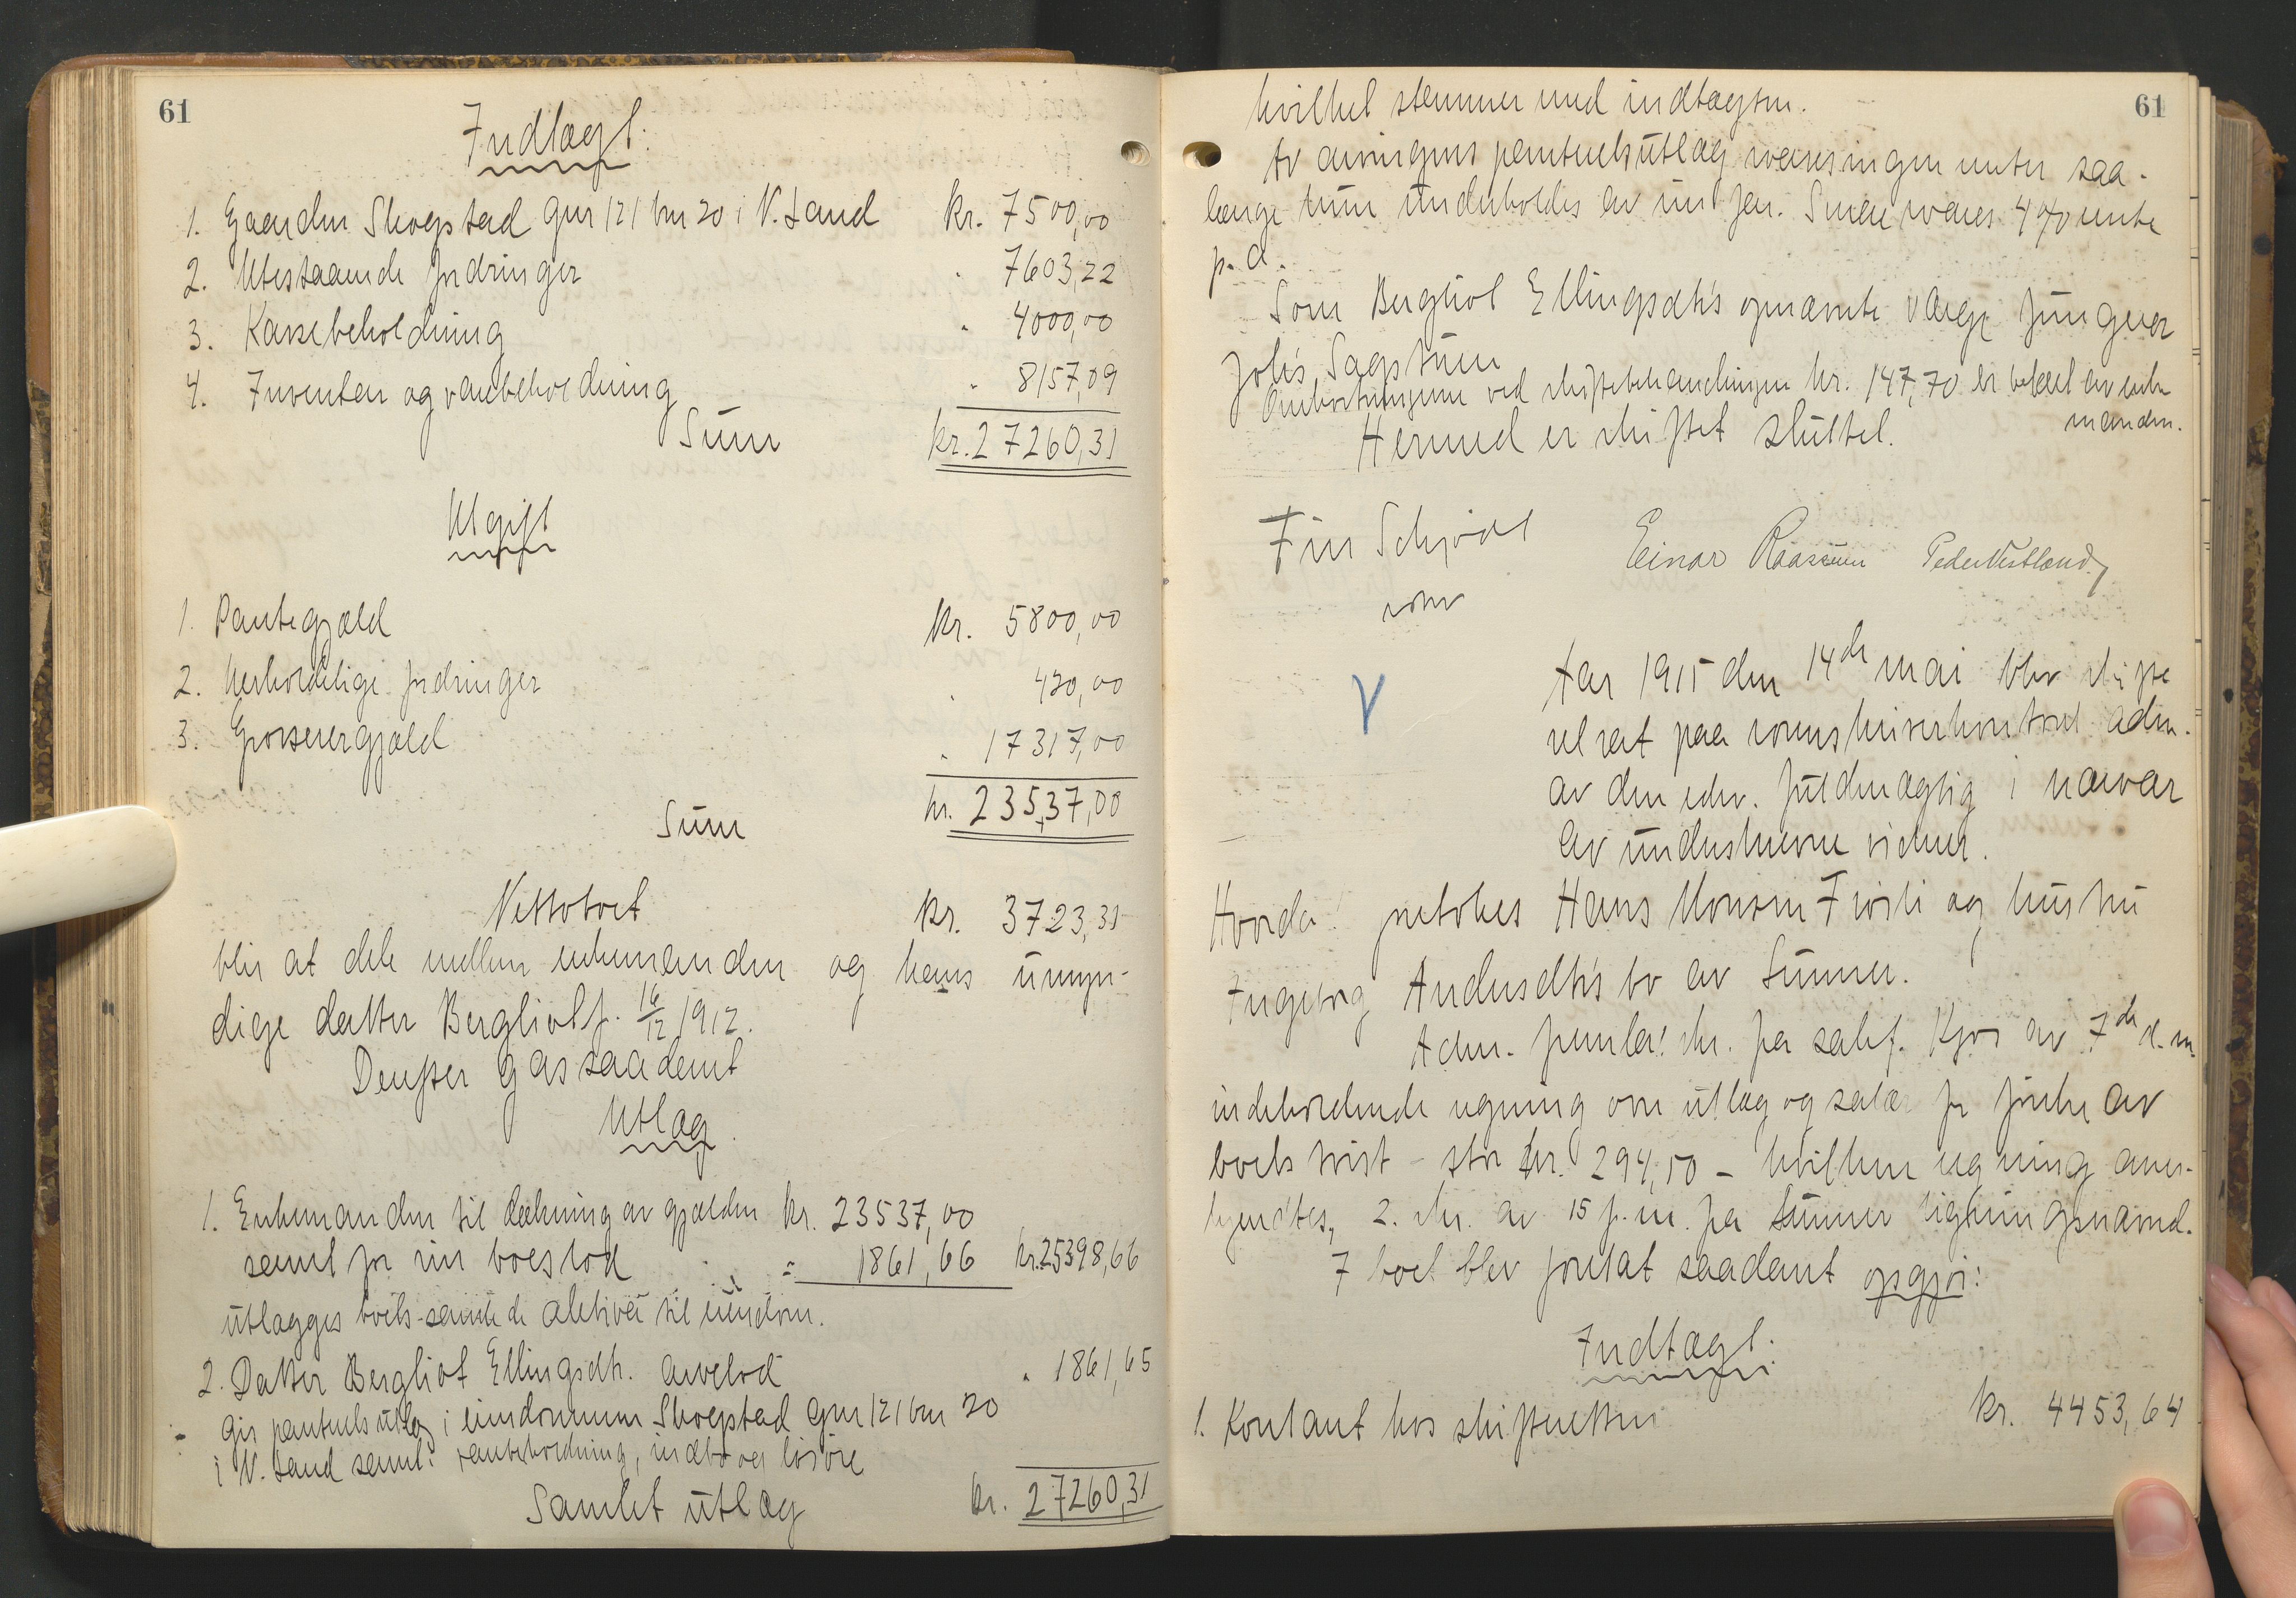 61
Indtægt:
1. Gaarden Skogstad gnr 121 bnr 20 i N. Land kr. 7500,00
2. Utestaaende fordringer " 7603,22
3. Kassebeholdning " 4000,00
4. Inventar og varebeholdning " 8157,09
Sum kr. 27260,31
Utgift
1. Pantegjæld kr. 5800,00
2. Uerholdelige fordringer " 420,00
3. Grosserergjæld " 17317,00
Sum kr. 23537,00
Nettoboet kr. 3723,31
blir at dele mellem enkemanden og hans umyn-
dige datter Bergliot f. 16/12 1912.
Derefter gas saadant
Utlæg.
1. Enkemanden til dækning av gjælden kr. 23537,00
samt for sin boeslod " 1861,66 kr. 25398,66
utlægges boets samtlige aktiver til eiendom.
2. Datter Bergliot Ellingsdtr. arvelod " 1861,65
gis panterets utlæg i eiendommen Skogstad gnr 121 bnr 20
i N. Land samt varebeholdning, indbo og løsøre
Samlet utlæg kr. 27260,31
61
hvilket stemmer med indtægten.
Av arvingens panterets utlæg svares ingen renter saa-
længe hun underholdes av sin far. Senere svares 4 % rente
p. a.
Som Bergliot Ellingsdtr's opnævnte værge fungerer
Johs Sagstuen
Omkostningerne ved skiftebehandlingen kr. 147,70 er betalt av enke-
manden.
Hermed er skiftet sluttet.
Finn Schjødt Einar Raasuen Peder Vestland
konst
V
Aar 1915 den 14de mai blev skifte
ret sat paa sorenskriverkontoret adm.
av den edsv. fuldmægtig i nærvær
av underskrevne vidner.
Hvorda foretokes Hans Monsen Fiosli og hustru
Ingeborg Andersdtr's bo av Tunner.
Adm. fremla: skr. fra sakf. Kjos av 7de d. m.
indeholdende regning over utlæg og salær for førelse av
boets tvist - stor kr. 294,50 - hvilken regning aner-
kjendtes, 2. skr. av 15 f. m. fra Tunner ligningsnævnd.
I boet blev foretat saadant opgjør:
Indtægt:
1. Kontant hos skifteretten kr. 4453,64